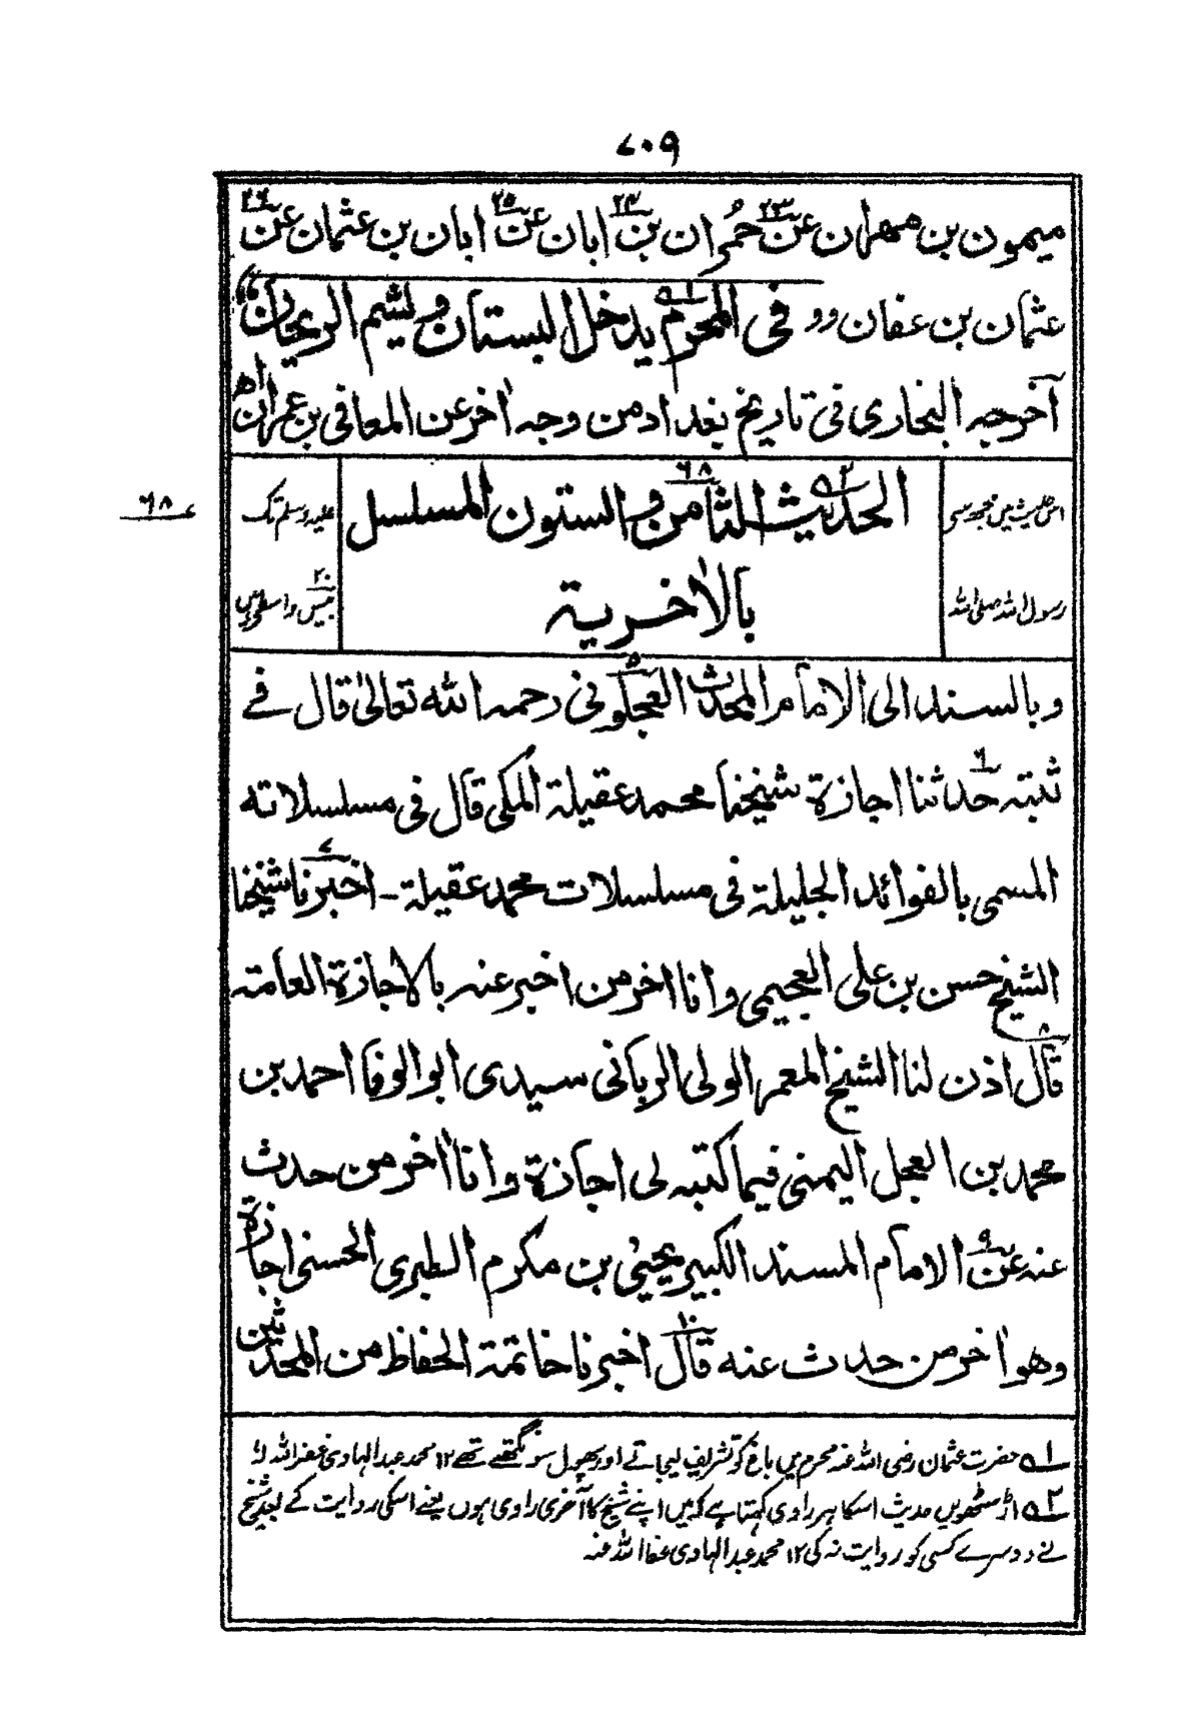 ۷۰۹
میمون بن مهران عن ۲۳ حُمران بن ۲۴ ابان عن ۲۵ ابان بن عثمان عن ۲۶
عثمان بن عفان رر فی المحرم ۱ یدخل البستان ویشم الریحان
آخرجه البخاری فی تاریخ بغداد من وجه اٰخر عن المعافی بن عمران اھ
اس حدیث میں مجھ سے
رسول اللہ صلی اللہ
الحدیث ۲ الثامن ۶۸ والستون المسلسل
بالاٰخریة
علیہ وسلم تک
۲۰ بیس واسطے ہیں
ع ۶۸
وبالسند الی الامام المحدث العجلونی ۵ رحمه الله تعالیٰ قال فے
ثبته حدثنا ۶ اجازة شیخنا محمد عقیلة المکی قال فی مسلسلاته
المسمی بالفوائد الجلیلة فی مسلسلات محمد عقیلة ـ اخبرنا ۷ شیخنا
الشیخ حسن بن علی العجیمی وانا اٰخر من اخبر عنه بالاجازة العامة
قال ۸ اذن لنا الشیخ المعمر الولی الربانی سیدی ابو الوفا احمد بن
محمد بن العجل الیمنی فیما کتبه لی اجازة وانا اٰخر من حدث
عنه عن ۹ الامام المسند الکبیر یحییٰ بن مکرم الطبری الحسنی اجازة
وهو اٰخر من حدث عنه قال ۱۰ اخبرنا خاتمة الحفاظ من المحدثین
۱ه حضرت عثمان رضی اللہ عنہ محرم میں باغ کو تشریف لیجاتے اور پھول سونگھتے تھے ۱۲ محمد عبدالہادی غفر اللہ لہٗ
۲ه اڑسٹھویں حدیث اسکا ہر راوی کہتا ہے کہ میں اپنے شیخ کا آخری راوی ہوں یعنے اسکی روایت کے بعد شیخ
نے دوسرے کسی کو روایت نہ کی ۱۲ محمد عبدالہادی عفا اللہ عنہ